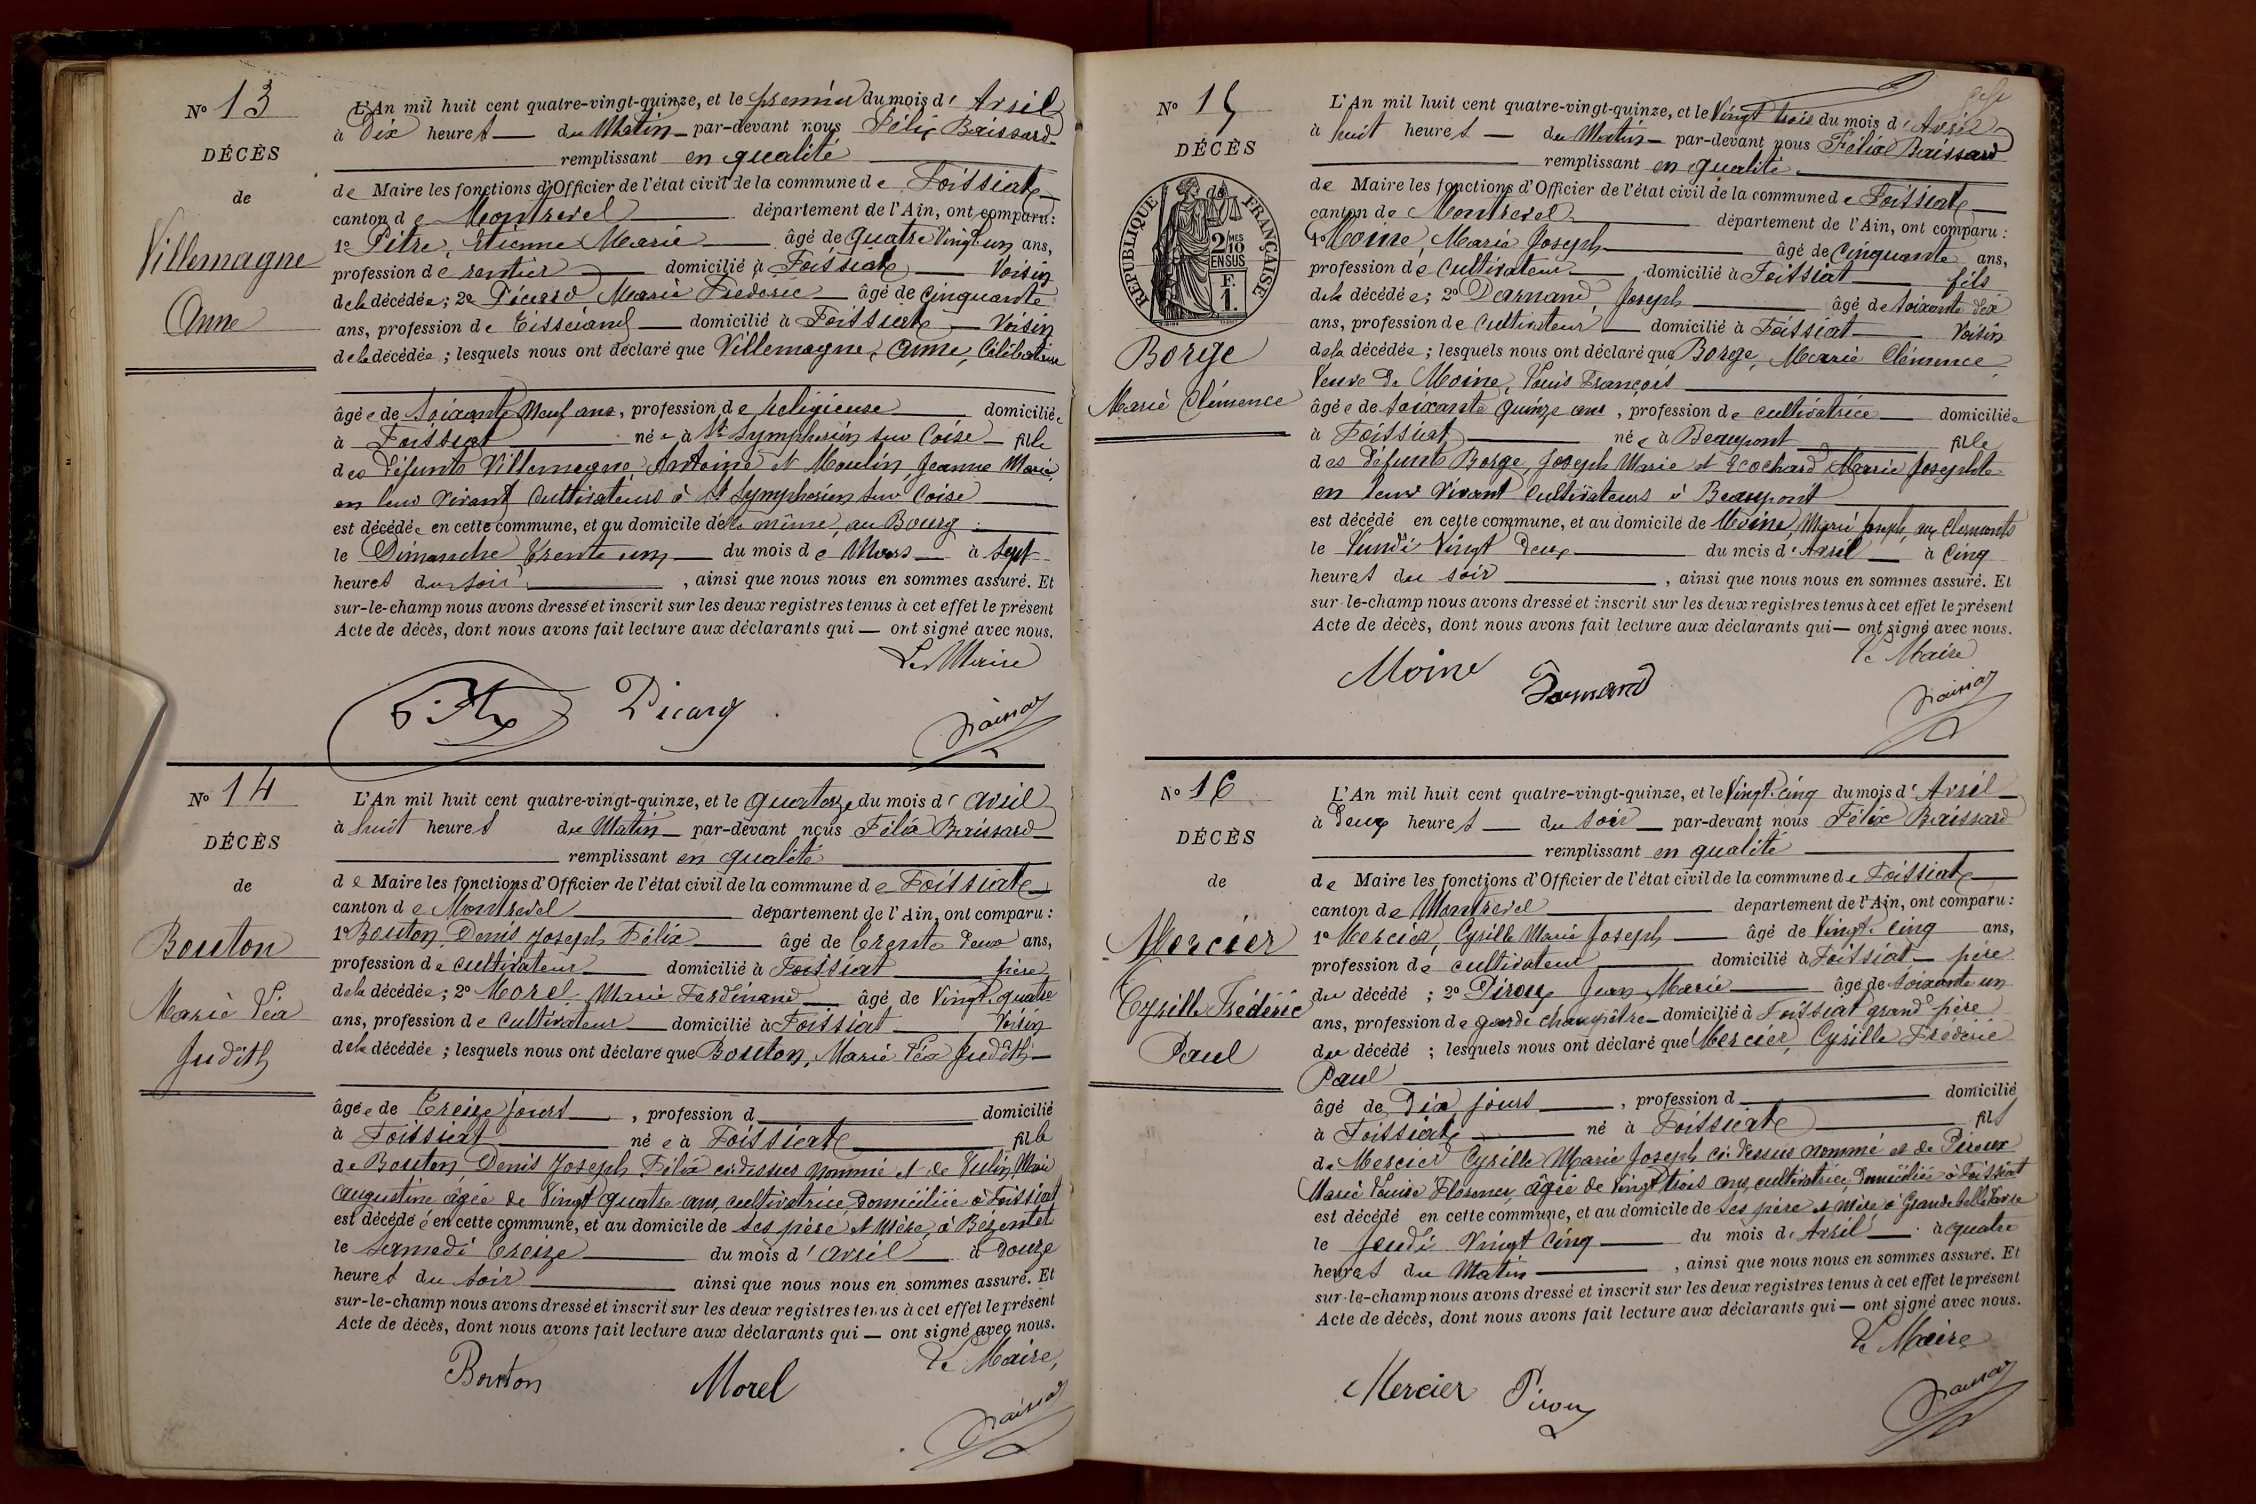 Nº 13
DÉCÈS
de
Villemagne
Anne
L'An mil huit cent quatre-vingt-quinze, et le premier du mois d'Avril
à Dix heures — du Matin — par-devant nous Félix Baissard
remplissant en qualité
de Maire les fonctions d'Officier de l'état civil de la commune de Foissiat
canton de Montrevel département de l'Ain, ont comparu:
1º Pitre, Etienne Marie âgé de quatre vingt un ans,
profession de rentier domicilié à Foissiat voisin
de la décédée; 2º Picard Marie Frédéric âgé de cinquante
ans, profession de Tisserand domicilié à Foissiat Voisin
de la décédée; lesquels nous ont déclaré que Villemagne, Anne, Célibataire
âgée de Soixante Neuf ans, profession de religieuse domiciliée
à Foissiat née à St Symphorien sur Coise fille
des défunts Villemagne, Antoine et Moulin, Jeanne Marie,
en leur vivant Cultivateurs à St Symphorien sur Coise
est décédée en cette commune, et au domicile de la même, au Bourg
le Dimanche trente un du mois de Mars à Sept
heures du soir, ainsi que nous nous en sommes assuré. Et
sur-le-champ nous avons dressé et inscrit sur les deux registres tenus à cet effet le présent
Acte de décès, dont nous avons fait lecture aux déclarants qui — ont signé avec nous.
Le Maire
Picard
Nº 14
DÉCÈS
de
Bouton
Marie Léa
Judith
L'An mil huit cent quatre-vingt-quinze, et le quatorze du mois d'avril
à huit heures du Matin — par-devant nous Félix Baissard
remplissant en qualité
de Maire les fonctions d'Officier de l'état civil de la commune de Foissiat
canton de Montrevel département de l'Ain, ont comparu:
1º Bouton, Denis Joseph Félix âgé de trente deux ans,
profession de cultivateur domicilié à Foissiat père
de la décédée; 2º Morel, Marie Ferdinand âgé de Vingt quatre
ans, profession de cultivateur domicilié à Foissiat Voisin
de la décédée; lesquels nous ont déclaré que Bouton, Marie Léa Judith
âgée de treize jours, profession d domicilié
à Foissiat née à Foissiat fille
de Bouton, Denis Joseph Félix ci-dessus nommé et de Vulin, Marie
Augustine âgée de Vingt quatre ans, cultivatrice, Domiciliée à Foissiat
est décédée en cette commune, et au domicile de ses père et mère, à Bézentet
le samedi treize du mois d'avril à Douze
heures du soir ainsi que nous nous en sommes assuré. Et
sur-le-champ nous avons dressé et inscrit sur les deux registres tenus à cet effet le présent
Acte de décès, dont nous avons fait lecture aux déclarants qui — ont signé avec nous.
Le Maire,
Bouton Morel
Baissard
Nº 15
DÉCÈS
de
RÉPUBLIQUE FRANÇAISE
2/10 MES
EN SUS
1 F.
Borge
Marie Clémence
L'An mil huit cent quatre-vingt-quinze, et le Vingt trois du mois d'Avril
à huit heures — du Matin — par-devant nous Félix Baissard
remplissant en qualité
de Maire les fonctions d'Officier de l'état civil de la commune de Foissiat
canton de Montrevel département de l'Ain, ont comparu:
1º Moine, Marie Joseph âgé de Cinquante ans,
profession de Cultivateur domicilié à Foissiat fils
de la décédée; 2º Darnand, Joseph âgé de soixante dix
ans, profession de cultivateur domicilié à Foissiat Voisin
de la décédée; lesquels nous ont déclaré que Borge, Marie Clémence,
Veuve de Moine, Louis François
âgée de soixante quinze ans, profession de cultivatrice domiciliée
à Foissiat née à Beaupont fille
des défunts Borge, Joseph Marie et Ecochard Marie Josephte
en leur vivant cultivateurs à Beaupont
est décédé en cette commune, et au domicile de Moine, Marie Joseph, aux Clermonts
le Lundi Vingt Deux du mois d'Avril à Cinq
heures du soir, ainsi que nous nous en sommes assuré. Et
sur-le-champ nous avons dressé et inscrit sur les deux registres tenus à cet effet le présent
Acte de décès, dont nous avons fait lecture aux déclarants qui — ont signé avec nous.
Le Maire
Moine Darnand
Baissard
Nº 16
DÉCÈS
de
Mercier
Cyrille Frédéric
Paul
L'An mil huit cent quatre-vingt-quinze, et le Vingt-cinq du mois d'Avril
à Deux heures — du soir — par-devant nous Félix Baissard
remplissant en qualité
de Maire les fonctions d'Officier de l'état civil de la commune de Foissiat
canton de Montrevel département de l'Ain, ont comparu:
1º Mercier, Cyrille Marie Joseph âgé de Vingt-cinq ans,
profession de cultivateur domicilié à Foissiat père
du décédé; 2º Piroux Jean Marie âgé de soixante un
ans, profession de garde champêtre domicilié à Foissiat grand père
du décédé; lesquels nous ont déclaré que Mercier, Cyrille Frédéric
Paul
âgé de Dix jours, profession d domicilié
à Foissiat né à Foissiat fils
de Mercier Cyrille Marie Joseph ci-dessus nommé et de Piroux
Marie Louise Florence, âgée de vingt trois ans, cultivatrice, Domiciliée à Foissiat
est décédé en cette commune, et au domicile de ses père et mère à Grande belle Vavre
le Jeudi Vingt Cinq du mois d'Avril à quatre
heures du Matin, ainsi que nous nous en sommes assuré. Et
sur-le-champ nous avons dressé et inscrit sur les deux registres tenus à cet effet le présent
Acte de décès, dont nous avons fait lecture aux déclarants qui — ont signé avec nous.
Le Maire
Mercier Piroux
Baissard